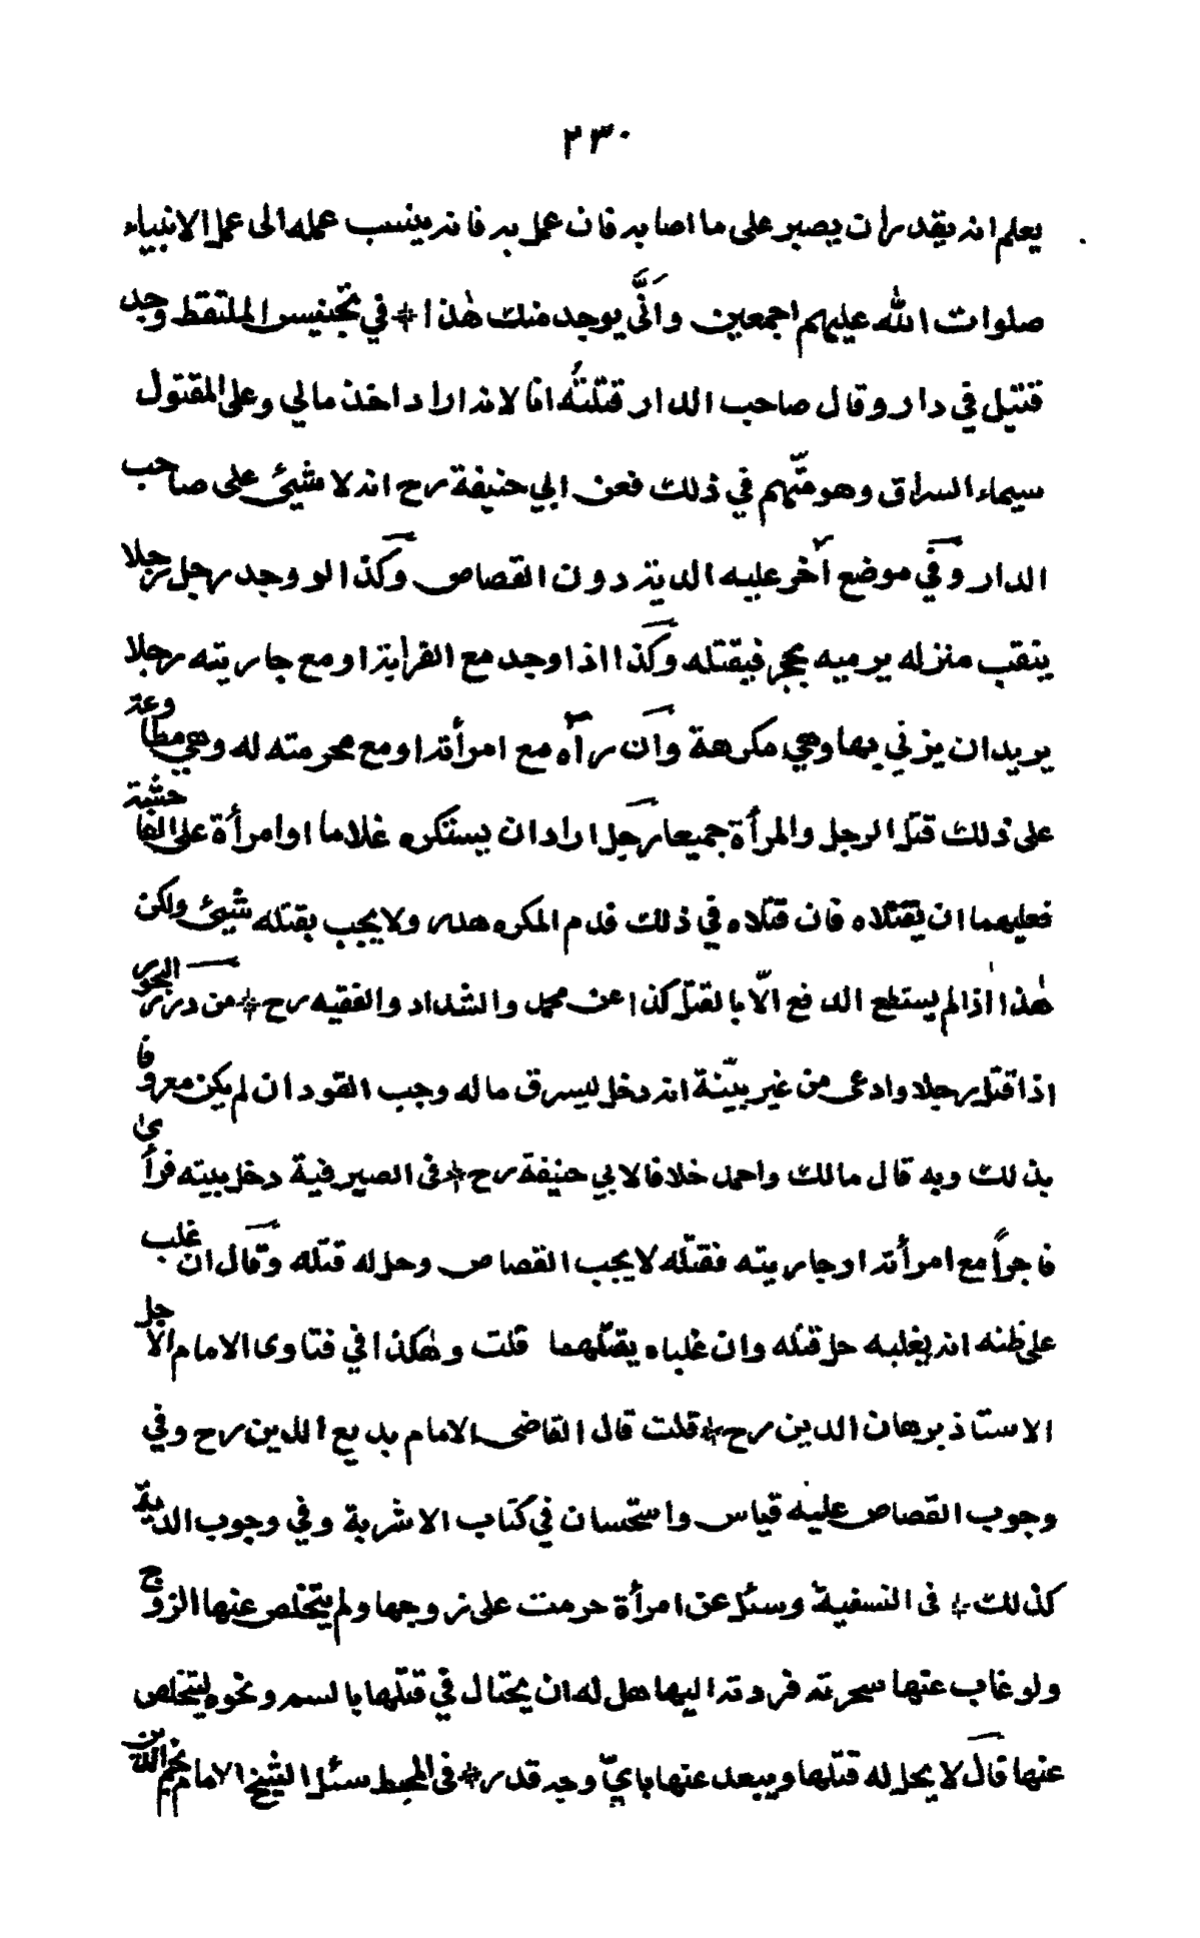 ٢٣٠
يعلم انه يقدر ان يصبر على ما اصابه فان عمل به فانه ينسب عمله الى عمل الانبياء
صلوات الله عليهم اجمعين وَاَنَّى يوجد منك هٰذا * في تجنيس الملتقط وجد
قتيل في دار وقال صاحب الدار قتلتُه انا لانه اراد اخذ مالي وعلى المقتول
سيماء السراق وهو متّهم في ذلك فعن ابي حنيفة رح انه لا شيئ على صاحب
الدار وفي موضع آخر عليه الدية دون القصاص وكذا لو وجد رجل رجلا
ينقب منزله يرميه بحجر فيقتله وكذا اذا وجد مع القرابة او مع جاريته رجلا
يريد ان يزني بها وهي مكرهة وان رآه مع امرأته او مع محرمته له وهي مطاوعة
على ذلك قتل الرجل والمرأة جميعا رجل اراد ان يستكره غلاما او امرأة على الفاحشة
فعليهما ان يقتلاه فان قتلاه في ذلك فدم المكره هدر ولا يجب بقتله شيئ ولكن
هٰذا اذا لم يستطع الدفع الّا بالقتل كذا عن محمد والشداد والفقيه رح * من درر البحور
اذا قتل رجلا وادعى من غير بيّنة انه دخل ليسرق ماله وجب القود ان لم يكن معروفا
بذلك وبه قال مالك واحمد خلافا لابي حنيفة رح * فى الصيرفية دخل بيته فرأى
فاجراً مع امرأته او جاريته فقتله لا يجب القصاص وحل له قتله وقال ان غلب
على ظنه انه يغلبه حل قتله وان غلباه يقتلهما قلت وهٰكذا في فتاوى الامام الاجل
الاستاذ برهان الدين رح * قلت قال القاضى الامام بديع الدين رح وفي
وجوب القصاص عليه قياس واستحسان في كتاب الاشربة وفي وجوب الدية
كذلك * فى النسفية وسئل عن امرأة حرمت على زوجها ولم يتخلص عنها الزوج
ولو غاب عنها سحرته فردته اليها هل له ان يحتال في قتلها بالسم ونحوه ليتخلص
عنها قال لا يحل له قتلها ويبعد عنها بايّ وجه قدر * فى المحيط سئل الشيخ الامام نجم الدين